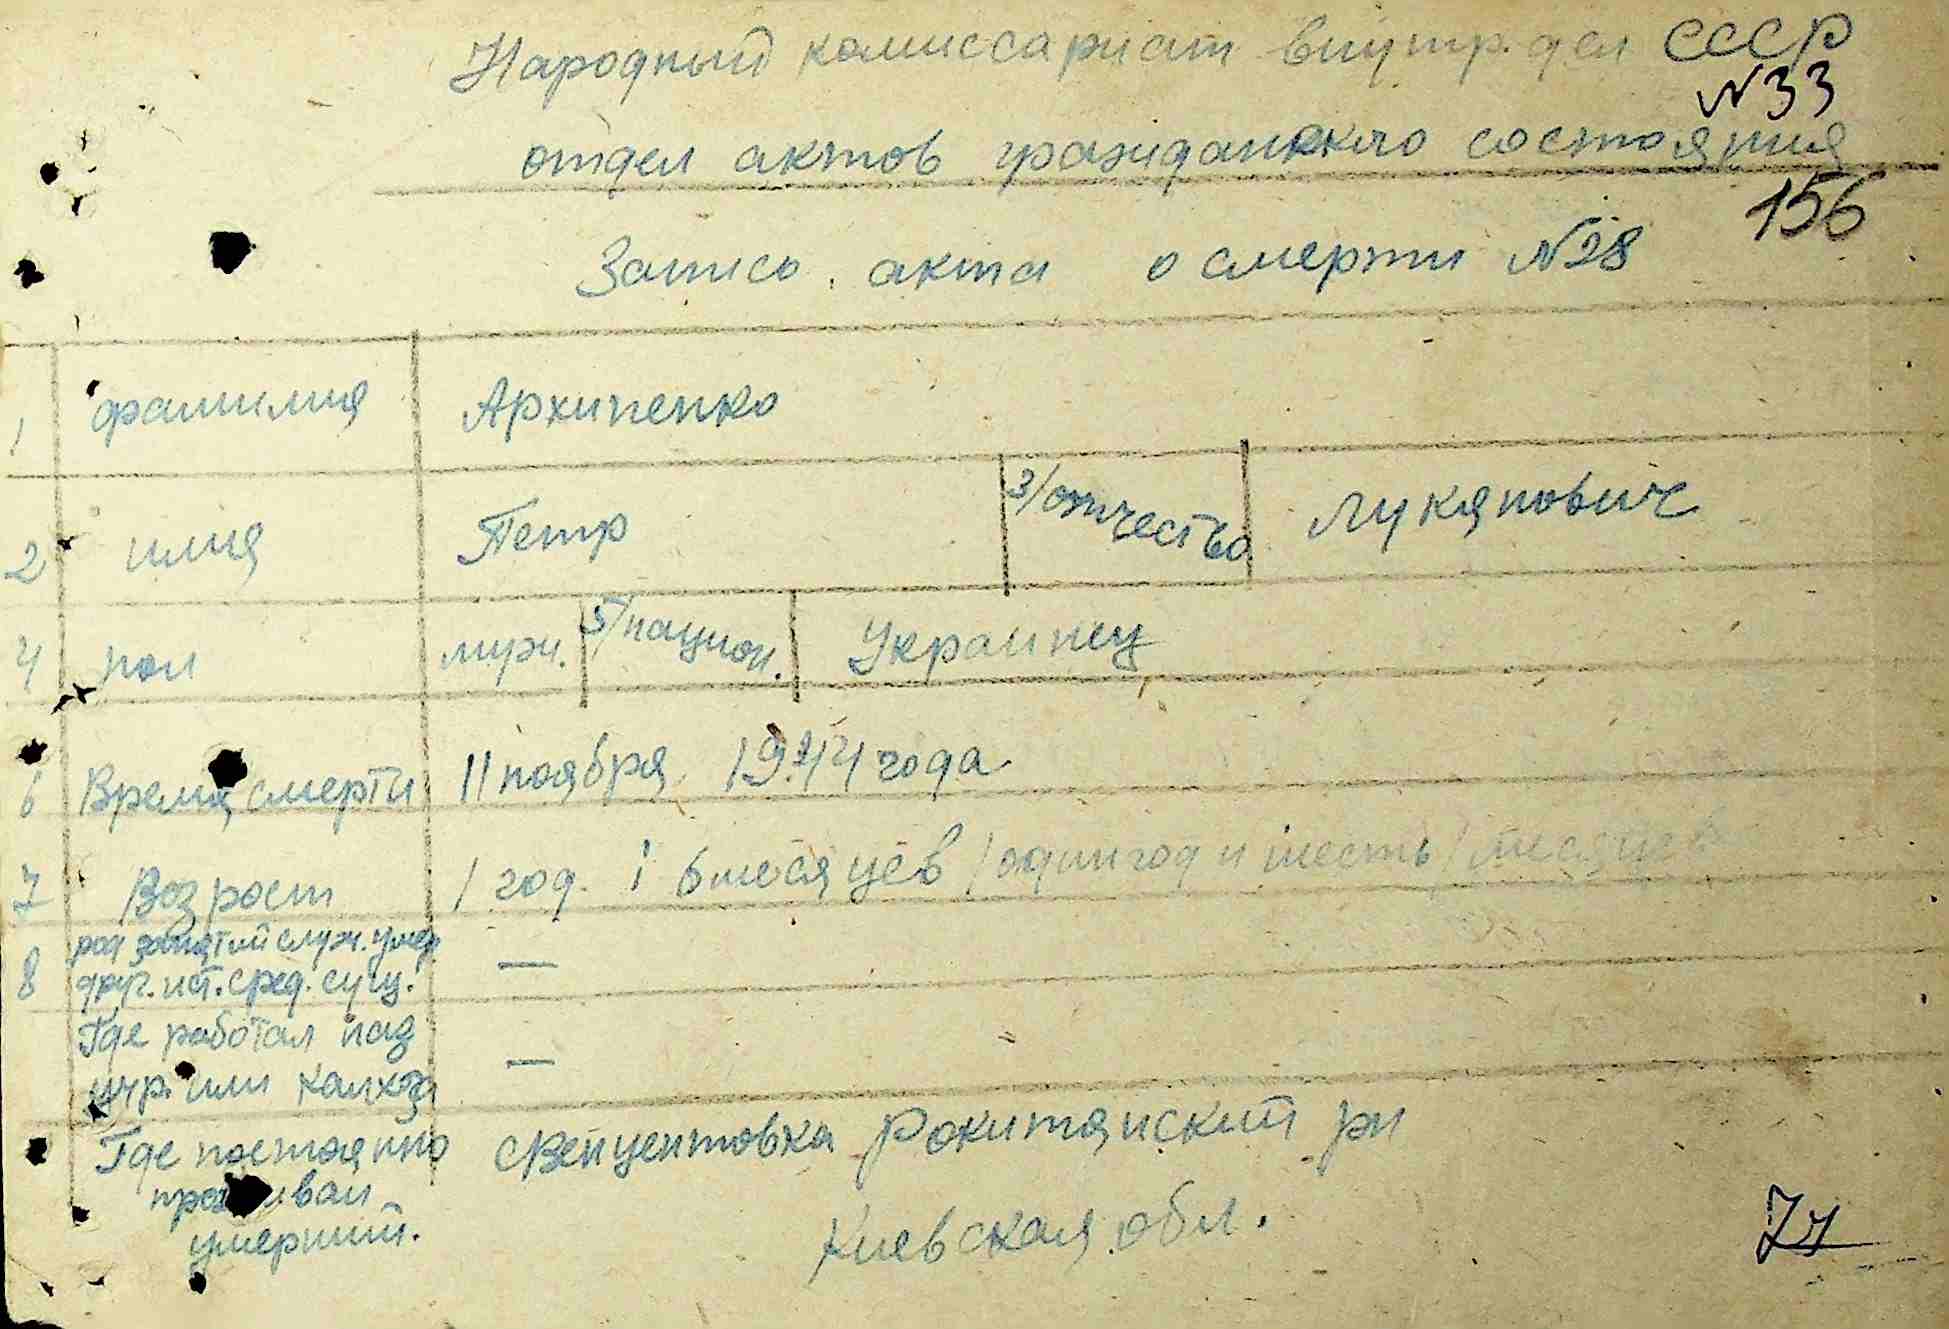 Народный комиссариат внутр. дел СССР
№33
отдел актов гражданского состояния
156
Запись акта о смерти №28
1 фамилия Архипенко
2 имия Петр 3/отчество Лукянович
4 пол муж. 5/национ. Украинец
6 Время смерти 11 ноября 1944 года
7 Возраст 1 год і 6 месяцев /один год и шесть/ месяцев
8 род занятий служ. умер.
друг. ист. сред. сущ. —
Где работал наз
учр. или калхоз —
Где постоянно Свенцентовка Рокитянский рн
проживал
умерший. Киевская обл.
74